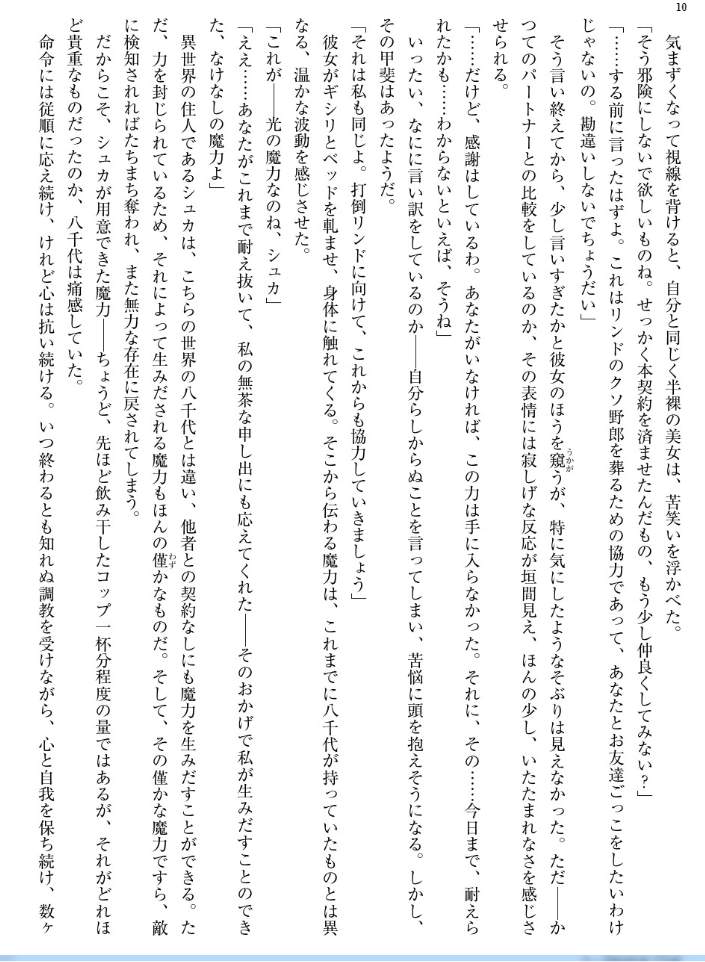 10
気まずくなって視線を背けると、自分と同じく半裸の美女は、苦笑いを浮かべた。
「そう邪険にしないで欲しいものね。せっかく本契約を済ませたんだもの、もう少し仲良くしてみない？」
「……する前に言ったはずよ。これはリンドのクソ野郎を葬るための協力であって、あなたとお友達ごっこをしたいわけ
じゃないの。勘違いしないでちょうだい」
そう言い終えてから、少し言いすぎたかと彼女のほうを窺うが、特に気にしたようなそぶりは見えなかった。ただ――か
つてのパートナーとの比較をしているのか、その表情には寂しげな反応が垣間見え、ほんの少し、いたたまれなさを感じさ
せられる。
「……だけど、感謝はしているわ。あなたがいなければ、この力は手に入らなかった。それに、その……今日まで、耐えら
れたかも……わからないといえば、そうね」
いったい、なにに言い訳をしているのか――自分らしからぬことを言ってしまい、苦悩に頭を抱えそうになる。しかし、
その甲斐はあったようだ。
「それは私も同じよ。打倒リンドに向けて、これからも協力していきましょう」
彼女がギシリとベッドを軋ませ、身体に触れてくる。そこから伝わる魔力は、これまでに八千代が持っていたものとは異
なる、温かな波動を感じさせた。
「これが――光の魔力なのね、シュカ」
「ええ……あなたがこれまで耐え抜いて、私の無茶な申し出にも応えてくれた――そのおかげで私が生みだすことのでき
た、なけなしの魔力よ」
異世界の住人であるシュカは、こちらの世界の八千代とは違い、他者との契約なしにも魔力を生みだすことができる。た
だ、力を封じられているため、それによって生みだされる魔力もほんの僅かなものだ。そして、その僅かな魔力ですら、敵
に検知されればたちまち奪われ、また無力な存在に戻されてしまう。
だからこそ、シュカが用意できた魔力――ちょうど、先ほど飲み干したコップ一杯分程度の量ではあるが、それがどれほ
ど貴重なものだったのか、八千代は痛感していた。
命令には従順に応え続け、けれど心は抗い続ける。いつ終わるとも知れぬ調教を受けながら、心と自我を保ち続け、数ヶ